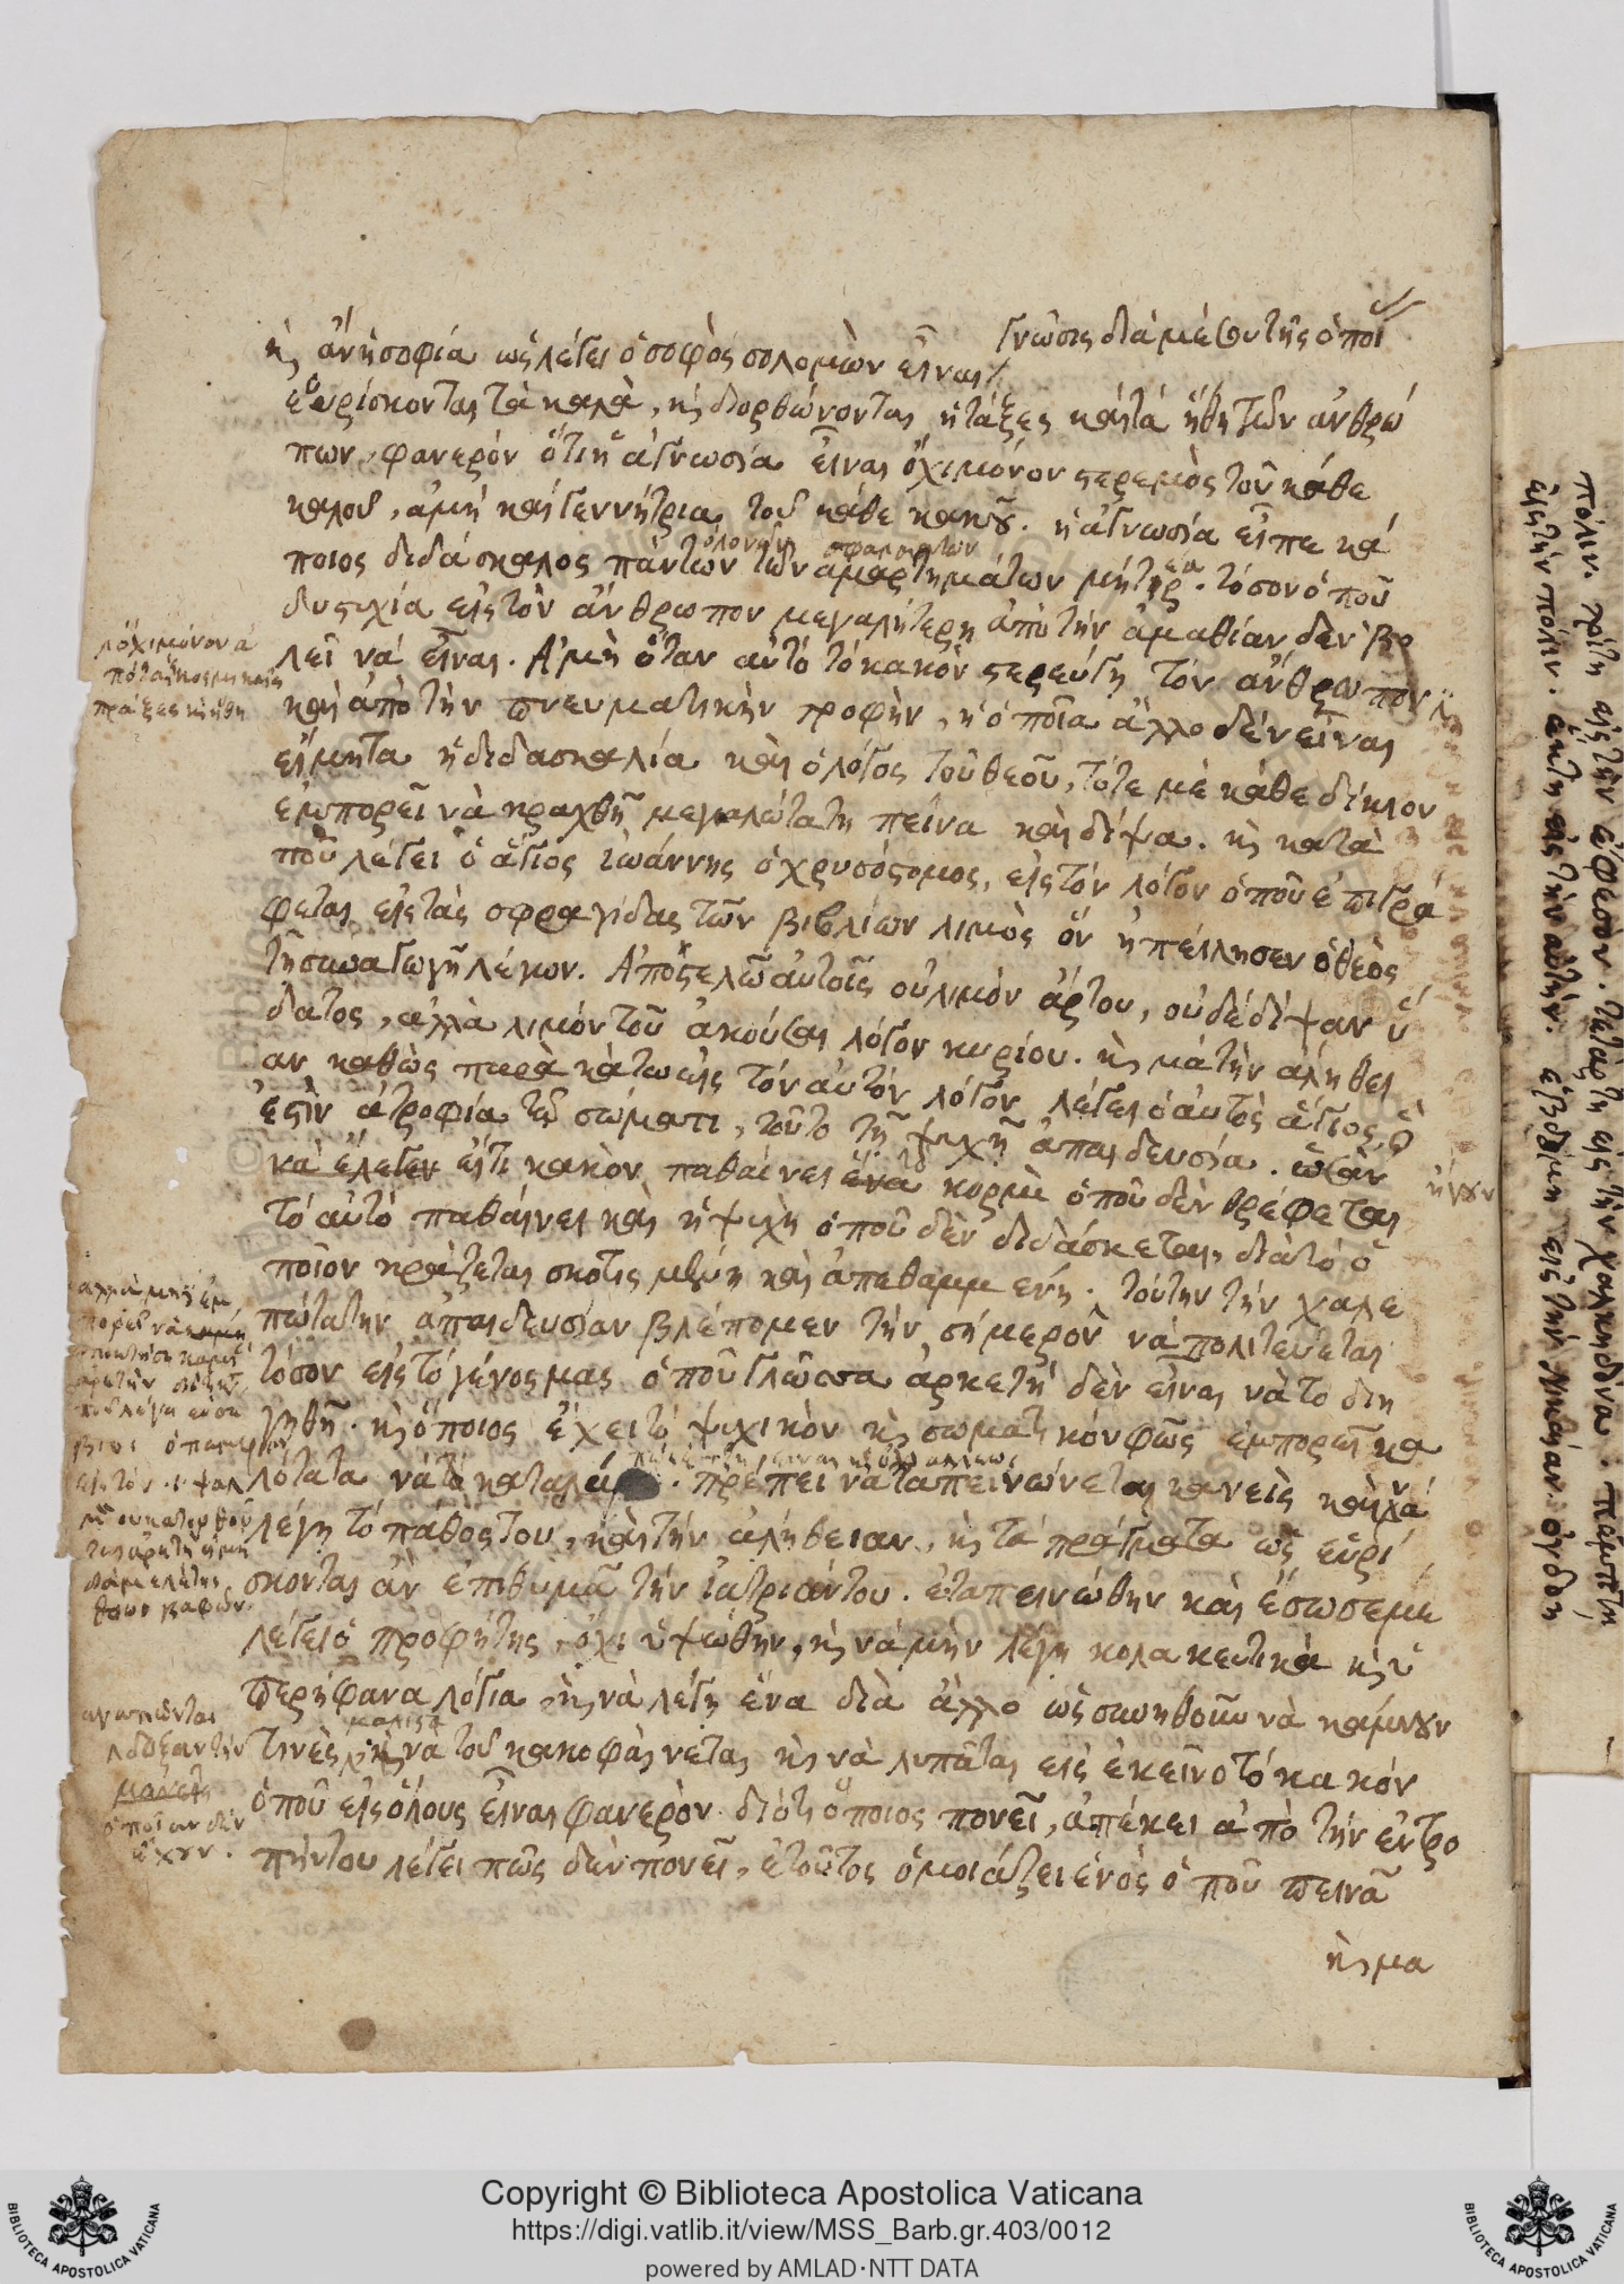 γνῶσις διὰ μέσου τῆς ὁποί
κὶ ἂν ἡ σοφία ὡς λέγει ὁ σοφὸς σολομὼν εἶναι
εὑρίσκονται τὰ καλὰ, κὶ διορθώνονται ἡ τάξες καὶ τὰ ἤθη τῶν ἀνθρώ
πων, φανερὸν ὅτι ἡ ἀγνωσία εἶναι ὄχι μόνον στερεμὸς τοῦ κάθε
καλοῦ, ἀμὴ καὶ γεννήτρια τοῦ κάθε κακοῦ. ἡ ἀγνωσία εἶπε κά
ποιος διδάσκαλος πάντων τῶν ἁμαρτημάτων μήτηρ. τόσον ὁποῦ
δυστυχία εἰς τὸν ἄνθρωπον μεγαλήτερη ἀπὸ τὴν ἀμαθίαν δὲν βο
λεῖ νὰ εἶναι. Ἀμὴ ὅταν αὐτὸ τὸ κακὸν στερεύγη τὸν ἄνθρωπον
καὶ ἀπὸ τὴν πνευματικὴν τροφὴν, ἡ ὁποῖα ἄλλο δὲν εἶναι
εἴμητα ἡ διδασκαλία καὶ ὁ λόγος τοῦ θεοῦ, τότε μὲ κάθε δίκιον
ἐμπορεῖ νὰ κραχθῆ μεγαλώτατη πείνα καὶ δίψα. κὶ κατὰ
ποῦ λέγει ὁ ἅγιος ἰωάννης ὁ χρυσόστομος, εἰς τὸν λόγον ὁποῦ ἐπιγρά
φεται εἰς τὰς σφραγίδας τῶν βιβλίων λιμὸς ὃν ἠπείλησεν ὁ θεὸς
τῇ συναγωγῇ λέγων. Ἀποστελῶ αὐτοῖς οὐ λιμὸν ἄρτου, οὐδὲ δίψαν ὕ
δατος, ἀλλὰ λιμὸν τοῦ ἀκοῦσαι λόγον κυρίου. κὶ μὰ τὴν ἀλήθει
αν καθὼς παρὰ κάτω εἰς τὸν αὐτὸν λόγον λέγει ὁ αὐτὸς ἅγιος, ὅ
ἐστὶν ἀτροφία τῷ σώματι, τοῦτο τῇ ψυχῇ ἀπαιδευσία. ὡσὰν
νὰ ἔλεγεν εἴτι κακὸν παθαίνει ἕνα κορμὶ ὁποῦ δὲν θρέφεται
τὸ αὐτὸ παθαίνει καὶ ἡ ψυχὴ ὁποῦ δὲν διδάσκεται, διὰ τὸ ὁ
ποῖον κράζεται σκοτισμένη καὶ ἀπεθαμμένη. τούτην τὴν χαλε
πώτατην ἀπαιδευσίαν βλέπομεν τὴν σήμερον νὰ πολιτεύεται
τόσον εἰς τὸ γένος μας ὁποῦ γλῶσσα ἀρκετὴ δὲν εἶναι νὰ τὸ διη
γηθῆ. κὶ ὅποιος ἔχει τὸ ψυχικὸν κὶ σωματικὸν φῶς ἐμπορεῖ κα
λότατα νὰ τὸ καταλάβη. πρέπει νὰ ταπεινώνεται κανεὶς καὶ νὰ
λέγη τὸ πάθος του, καὶ τὴν ἀλήθειαν, κὶ τὰ πράγματα ὡς εὑρί
σκονται ἂν ἐπιθυμᾶ τὴν ἰατριάν του. ἐταπεινώθην καὶ ἔσωσέ με
λέγει ὁ προφήτης, ὄχι ὑψώθην, κὶ νὰ μὴν λέγη κολακευτικὰ κὶ ὑ
περήφανα λόγια, κὶ νὰ λέγη ἕνα διὰ ἄλλο ὡς συνηθοῦν νὰ κάμνουν
τινὲς, κὶ νὰ τοῦ κακοφαίνεται κὶ νὰ λυπᾶται εἰς ἐκεῖνο τὸ κακόν
ὁποῦ εἰς ὅλους εἶναι φανερόν. διότι ὅποιος πονεῖ, ἀπέκει ἀπὸ τὴν ἐντρο
πήν του λέγει πῶς δὲν πονεῖ, ἐτοῦτος ὁμοιάζει ἑνὸς ὁποῦ πεινᾶ
κὶ μα
πόλιν. τρίτη εἰς τὴν ἔφεσον. τετάρτη εἰς τὴν χαλκηδόνα. πέμπτη
εἰς τὴν πόλιν. ἕκτη εἰς τὴν αὐτήν. ἑβδόμη εἰς τὴν νίκαιαν. ὀγδόη
Copyright © Biblioteca Apostolica Vaticana
https://digi.vatlib.it/view/MSS_Barb.gr.403/0012
powered by AMLAD·NTT DATA
BIBLIOTECA APOSTOLICA VATICANA
BIBLIOTECA APOSTOLICA VATICANA